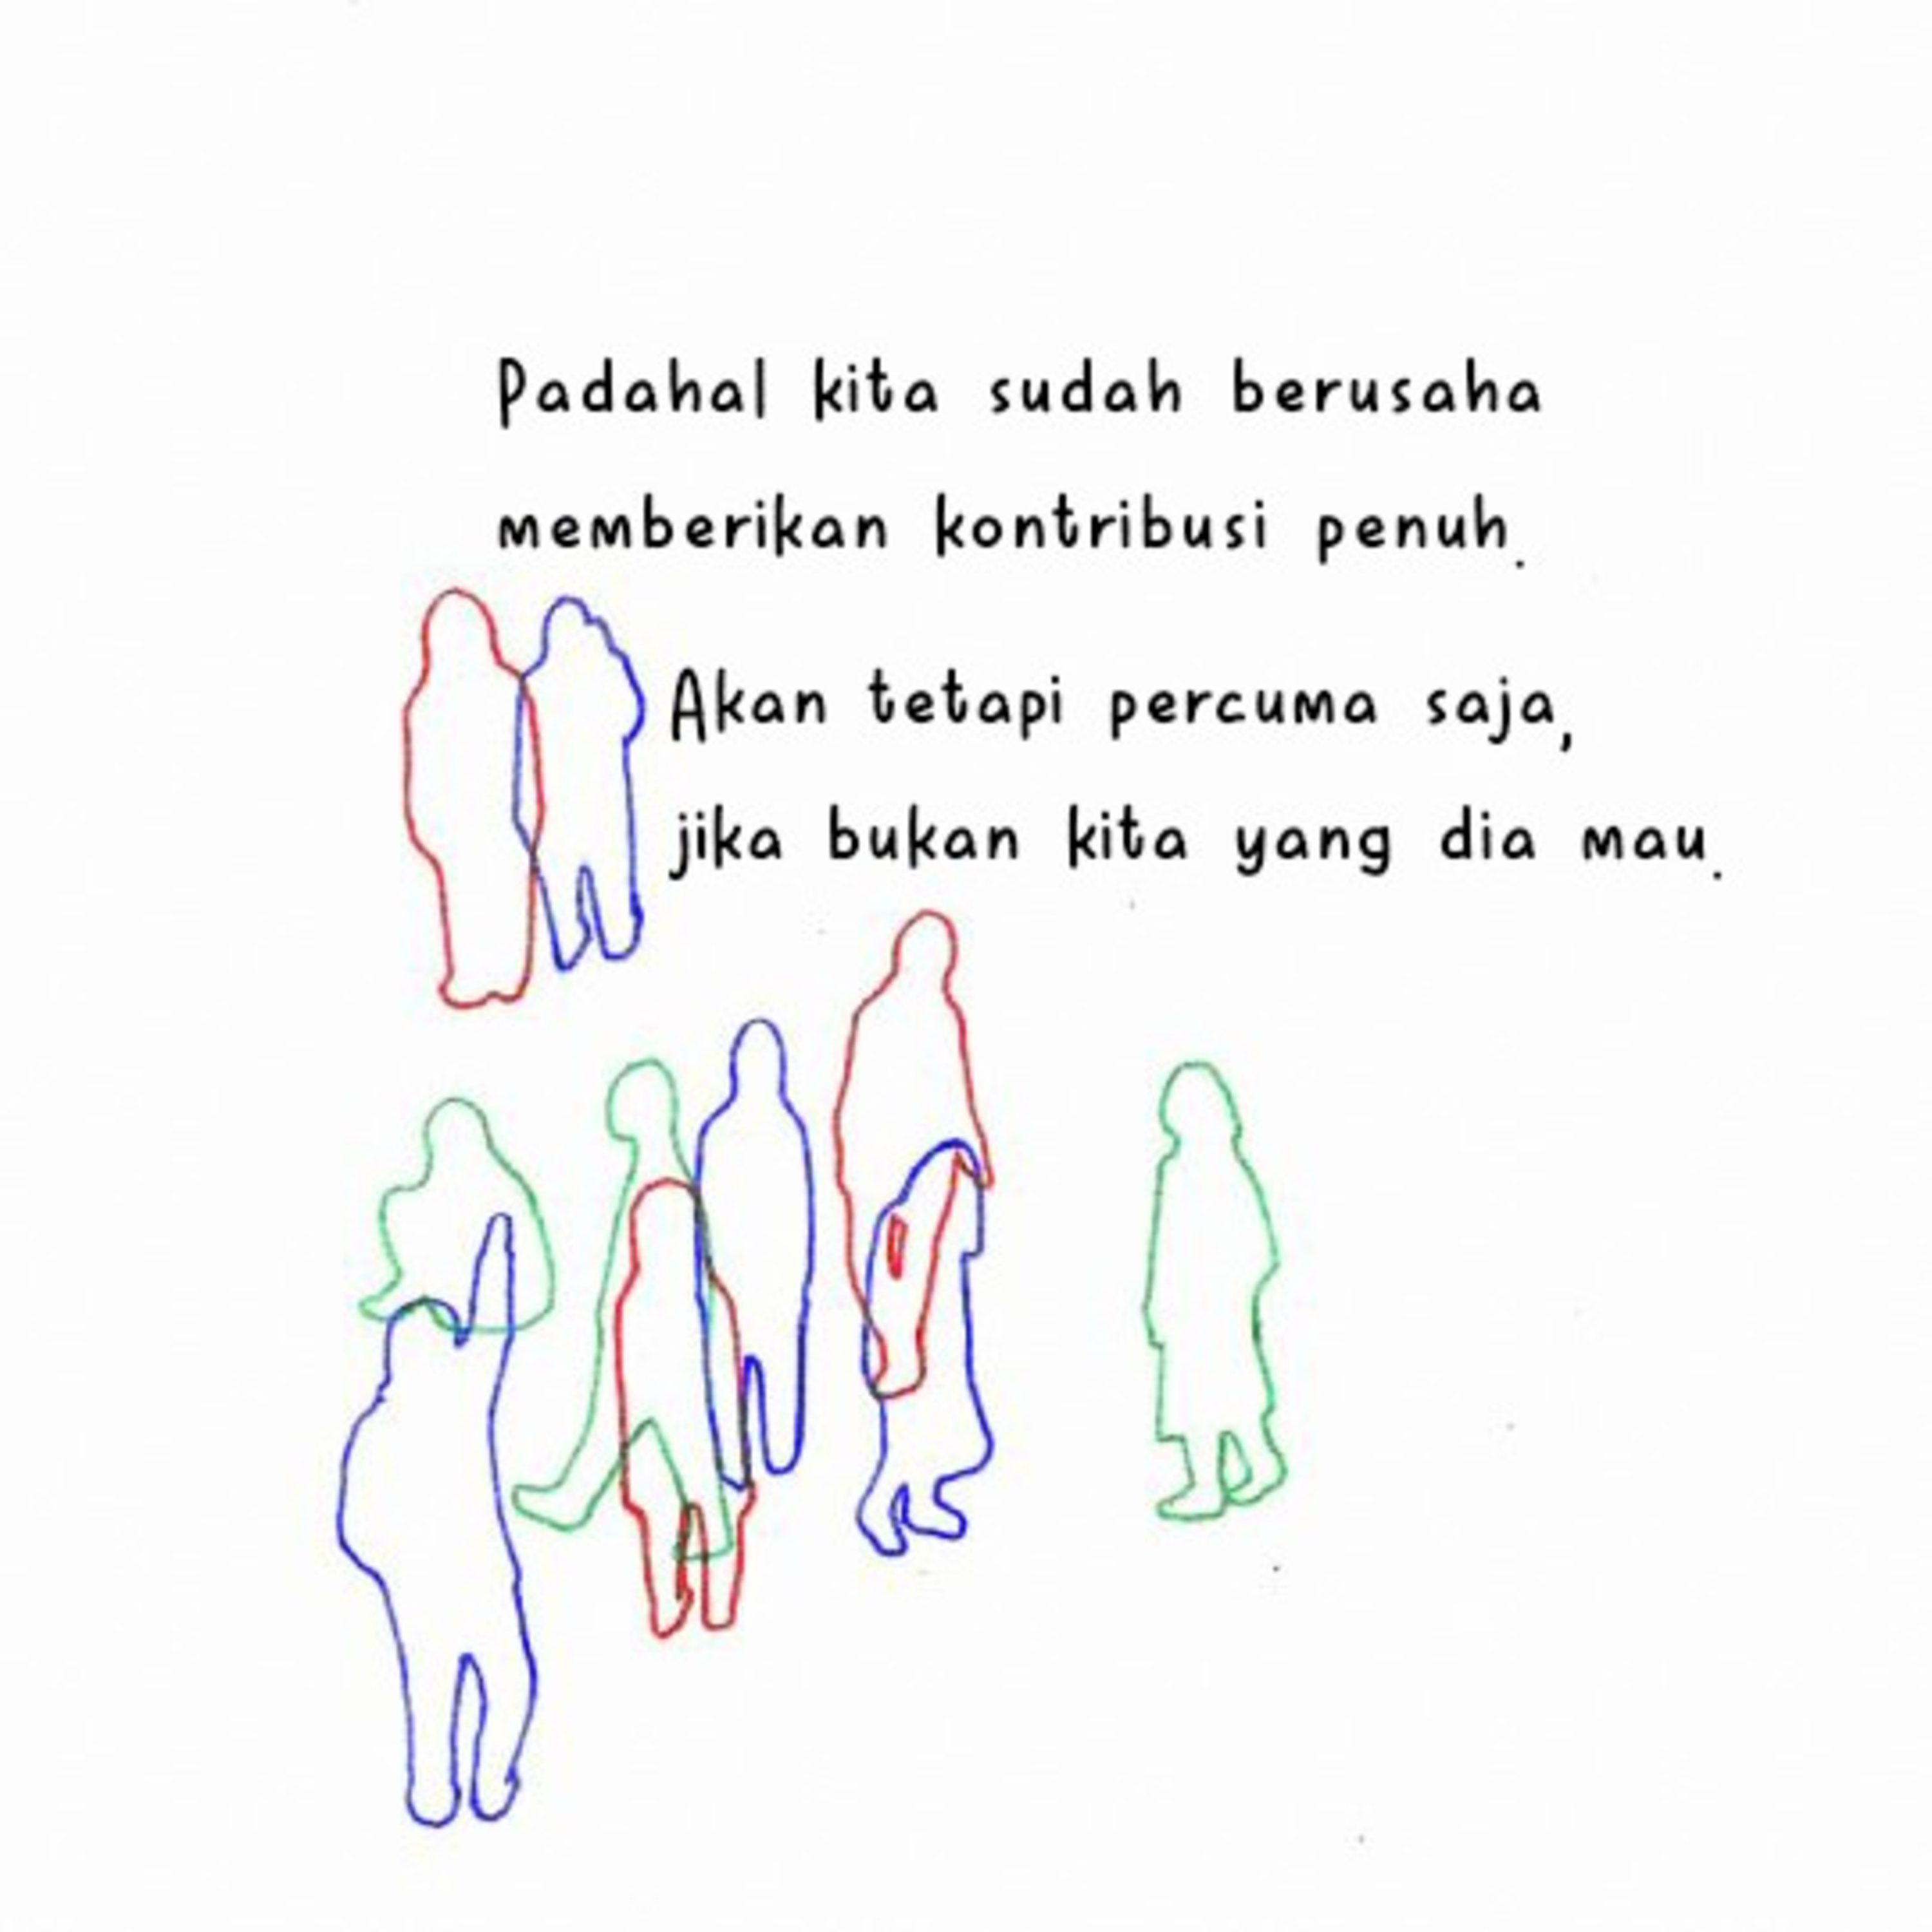 Padahal kita sudah berusaha
memberikan kontribusi penuh.
Akan tetapi percuma saja,
jika bukan kita yang dia mau.